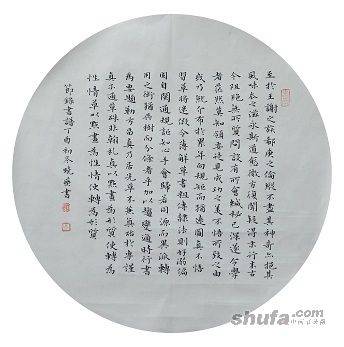 至於王謝之族郗庾之倫縱不盡其神奇亦挹其
風味去之滋永斯道愈微方復聞疑得末行末古
今阻絕無所質問設有所會緘秘已深遂令學
者茫然莫知領要徒見成功之美不悟所致之由
或乃就分布於累年向規矩而猶遠圖真不悟
習草將迷假令薄解草書粗傳隸法則好溺偏
固自閡通規詎知心手會歸若同源而異派轉
用之術猶共樹而分條者乎加以趨變適時行書
為要題勒方畐真乃居先草不兼真殆於專謹
真不通草殊非翰札真以點畫為形質使轉為
性情草以點畫為性情使轉為形質
節錄書譜丁酉初冬曉書
shufa.com